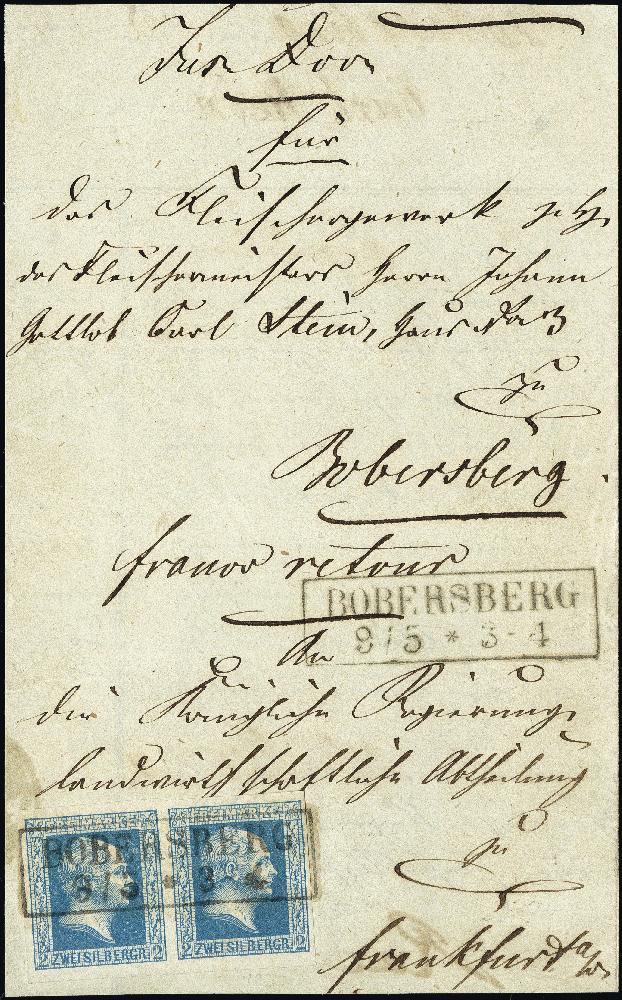 für
das Fleischergewerk z. H.
des Fleischermeisters Herrn Johann
Gottlob Carl Stein, Haus No 3
zu
Bobersberg
franco retour
BOBERSBERG
9/5 * 3-4
An
die Königliche Regierung,
landwirthschaftliche Abtheilung
BOBERSBERG
9/5 * 3-4
zu
2 ZWEI SILBERGR. 2
2 ZWEI SILBERGR. 2
Frankfurt a/O.